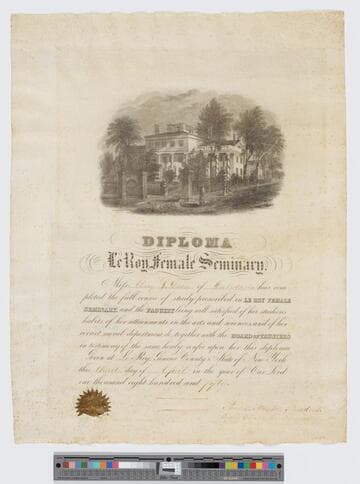 DIPLOMA
Le Roy Female Seminary.
Miss of has com
pleted the full course of study prescribed in LE ROY FEMALE
SEMINARY, and the FACULTY being well satisfied of her studious
habits, of her attainments in the arts and sciences and of her
correct moral deportment do together with the BOARD OF TRUSTEES
in testimony of the same hereby confer upon her this diploma
Given at Le Roy, Genesee County & State of New York
this day of April in the year of Our Lord
one thousand eight hundred and